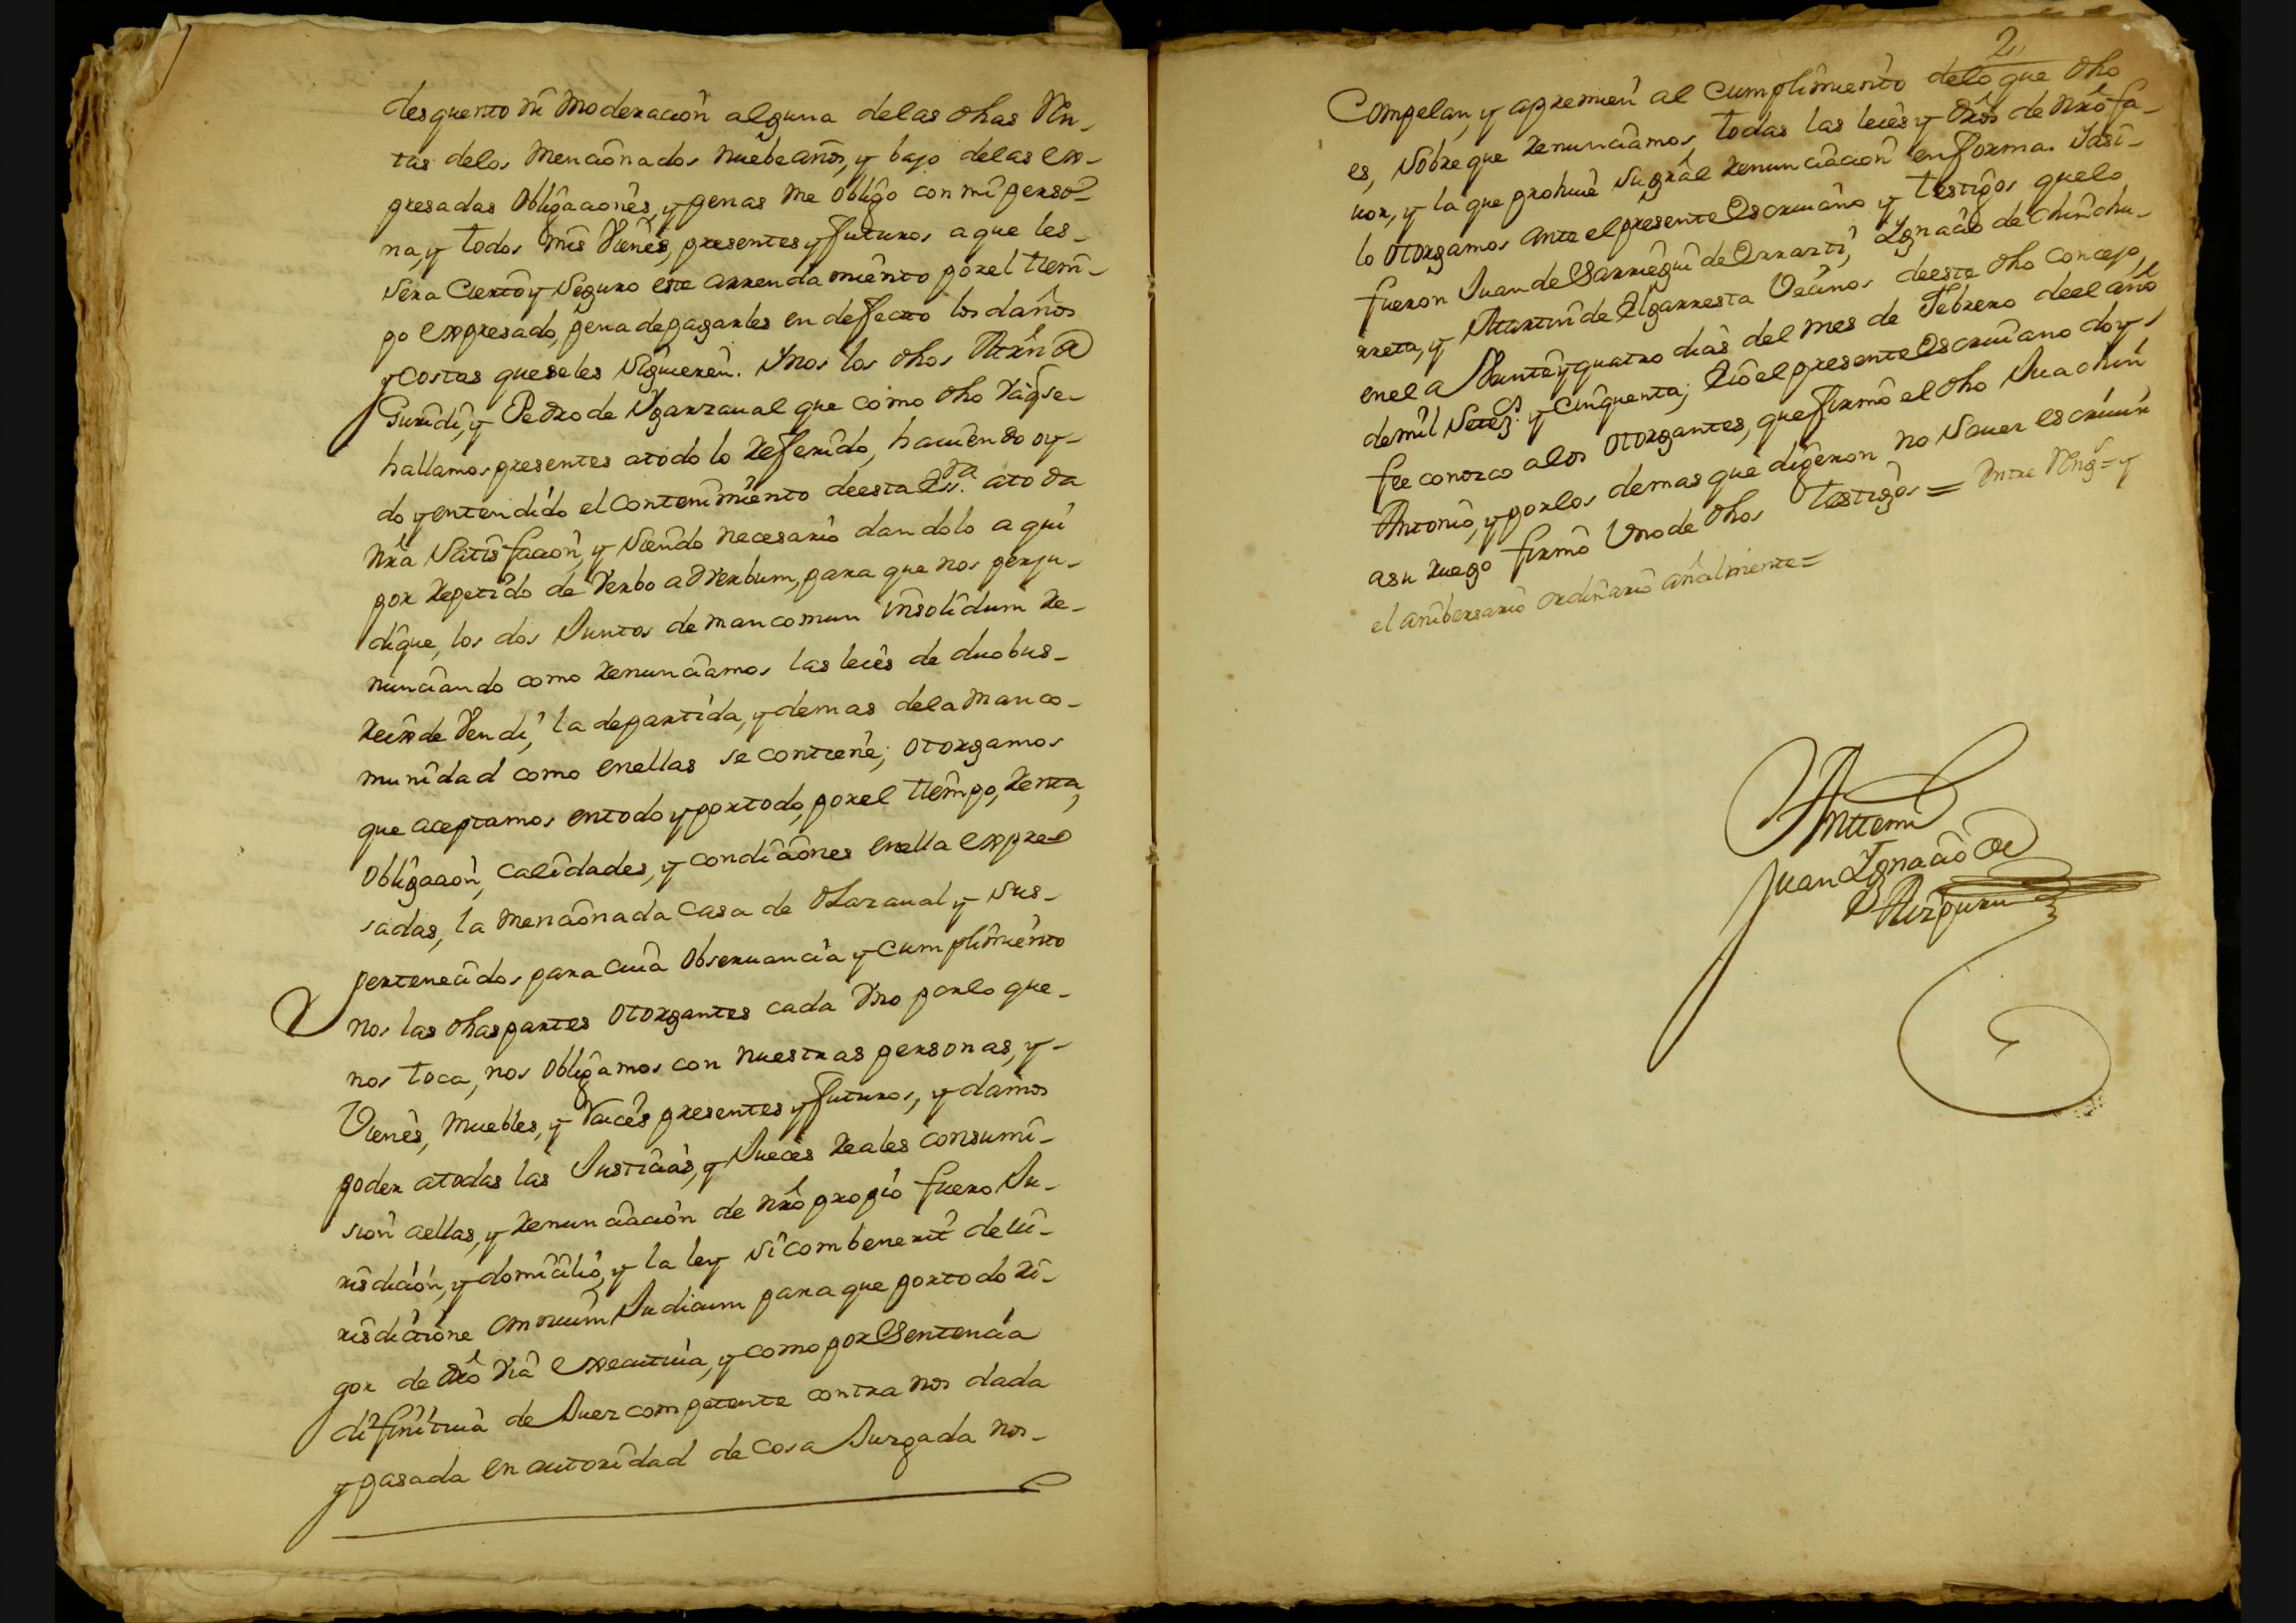 desquento ni moderacion alguna delas dhas Ren-
tas delos mencionados nuebe años, y bajo delas ex-
presadas obligaciones, y penas me obligo con mi perso-
na, y todos mis vienes, presentes y futuros a que les-
sera cierto y seguro este arrendamiento por el tiem-
po expresado, pena de pagarles en deffecto los daños
y costas que seles siguieren. Y nos los dhos Mrn de
Guridi, y Pedro de Ygarzaual que como dho va, q̃ se-
hallamos presentes atodo lo refferido, hauiendo oy-
do y entendido el contenimiento deesta Ess.ra atoda
nr̃a satisfacion, y siendo necesario dandolo aqui
por repetido de verbo adverbum, para que nos perju-
dique, los dos Juntos de mancomun insolidum re-
nunciando como renunciamos las leies de duobus-
reix de vendi, la departida, y demas dela manco-
munidad como enellas se contiene; otorgamos
que aceptamos entodo y portodo, porel tiempo, renta,
obligacion, calidades, y condiciones enella expre-
sadas, la mencionada casa de Olazaual y sus-
pertenecidos para cuia obseruancia y cumplimiento
nos las dhas partes otorgantes cada vno porlo que-
nos toca, nos obligamos con nuestras personas, y-
vienes, muebles, y raices presentes y futuros, y damos
poder atodas las Justicias, y Jueces reales consumi-
sion aellas, y renunciacion de nr̃o propio fuero Ju-
risdicion, y domicilio, y la ley sicombenerit de iu-
risdictione omnium Judicum para que portodo ri-
gor de dr̃o via executiua, y como por sentencia
difinitiua de Juez competente contra nos dada
y pasada en autoridad de cosa Juzgada nos-
2,,
Compelan, y apremien al cumplimiento delo que dho
es, sobre que renunciamos, todas las leies y dr̃os de nr̃o fa-
uor, y la que prohiue su gr̃al renunciacion en forma. Y asi-
lo otorgamos ante el presente Escriuano y testigos quelo
fueron Juan de Sarriegui de Errazti, Ygnacio de Chinchu-
rreta, y Martin de Elgarresta Vecinos deeste dho concejo,
enel a Veinte y quatro dias del mes de Febrero deel año
demil setez.s y cinquenta; E io el presente Escriuano doy
fee conozco a los otorgantes, que firmo el dho Juachin
Antonio, y porlos demas que digeron no sauer escriuir
asu ruego firmo Vno de dhos testigos = entre Reng.s = y
el anibersario ordinario añalmente =
Anttemi
Juan Ygnacio de
Aizpuru